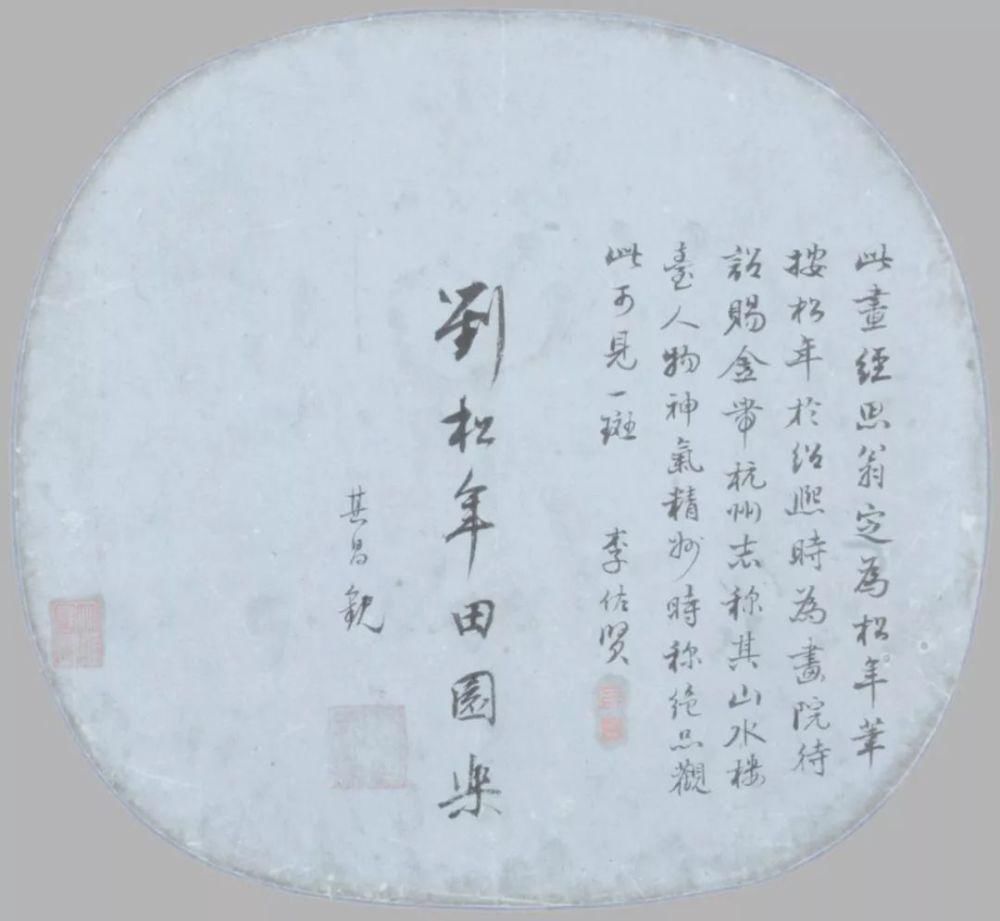 此畫經思翁定為松年筆
按松年於紹熙時為畫院待
詔賜金帶杭州志称其山水楼
臺人物神氣精妙時称絶品觀
此可見一斑
李佐贤
劉松年田園樂
其昌觀